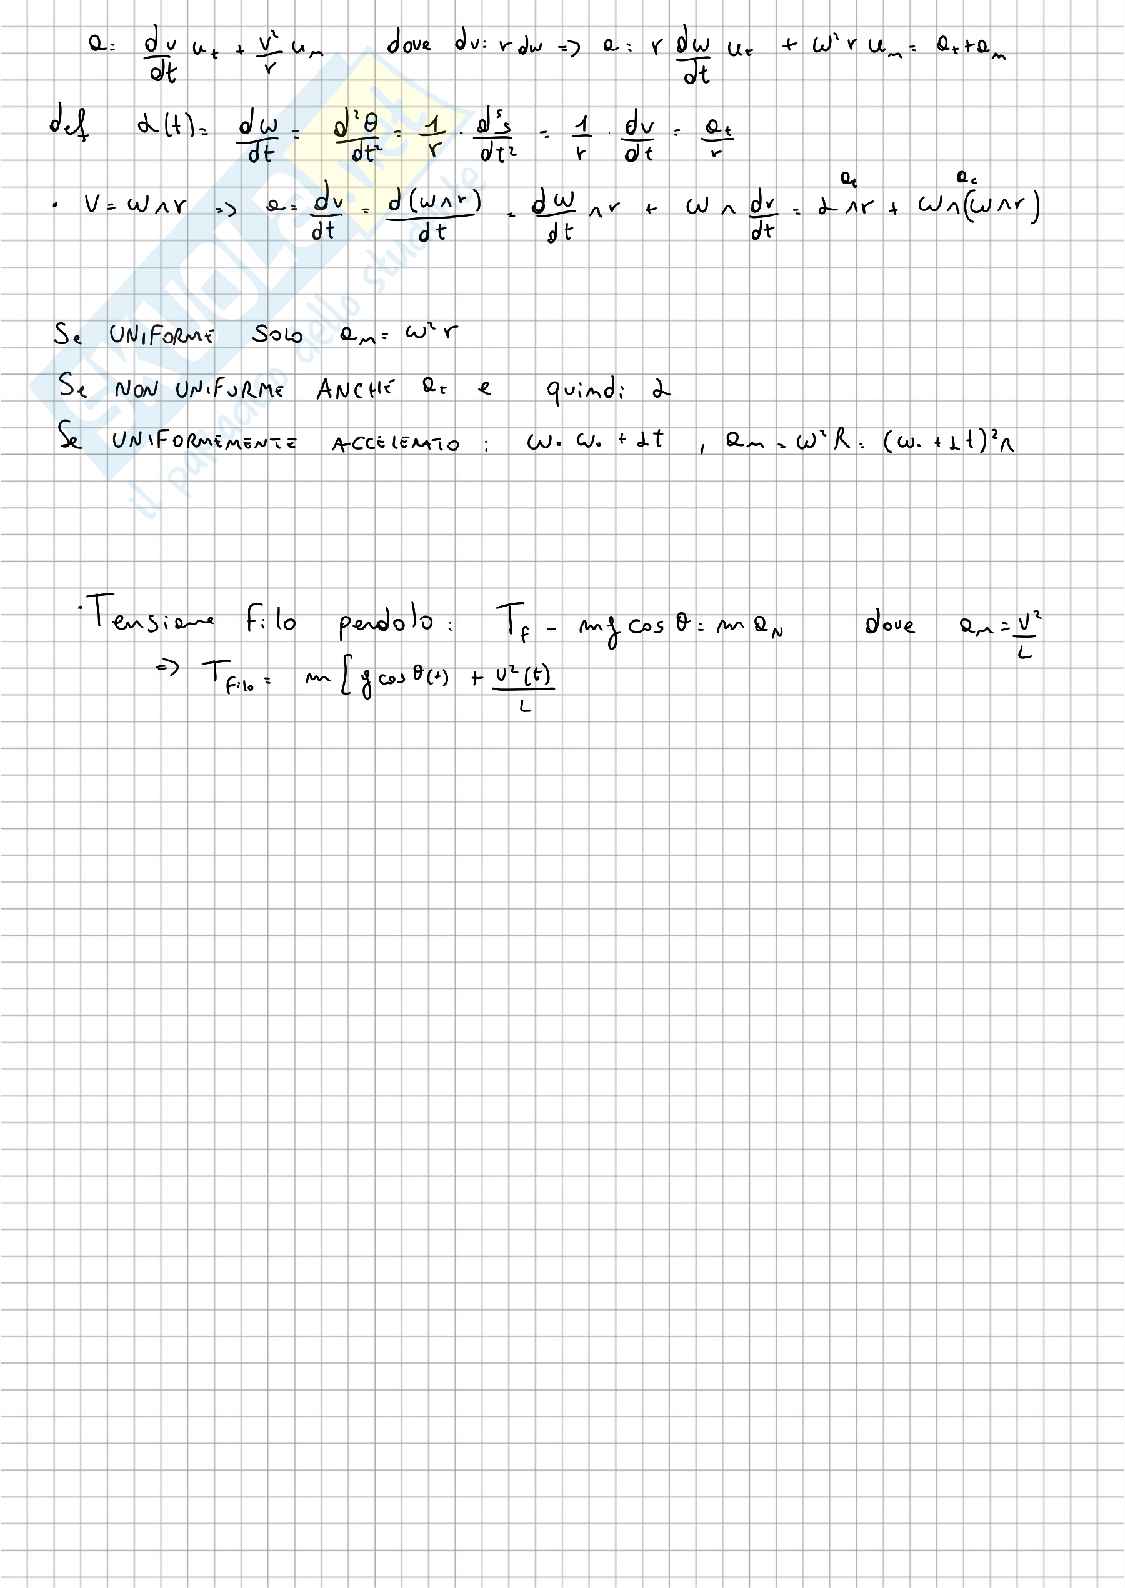 a = dv/dt u_t + v²/r u_n dove dv = r dω => a = r dω/dt u_t + ω² r u_n = a_t + a_n
def α(t) = dω/dt = d²θ/dt² = 1/r · d²s/dt² = 1/r · dv/dt = a_t/r
• V = ω∧r => a = dv/dt = d(ω∧r)/dt = dω/dt ∧ r + ω ∧ dr/dt = α∧r + ω∧(ω∧r)
a_t a_c
Se UNIFORME SOLO a_n = ω² r
Se NON UNIFORME ANCHE a_t e quindi α
Se UNIFORMEMENTE ACCELERATO : ω = ω₀ + αt , a_n = ω² R = (ω₀ + αt)² R
· Tensione filo pendolo : T_F - mg cos θ = m a_N dove a_n = V²/L
=> T_Filo = m [ g cos θ(t) + v²(t)/L
SKUOLA.net
il paradiso dello studente